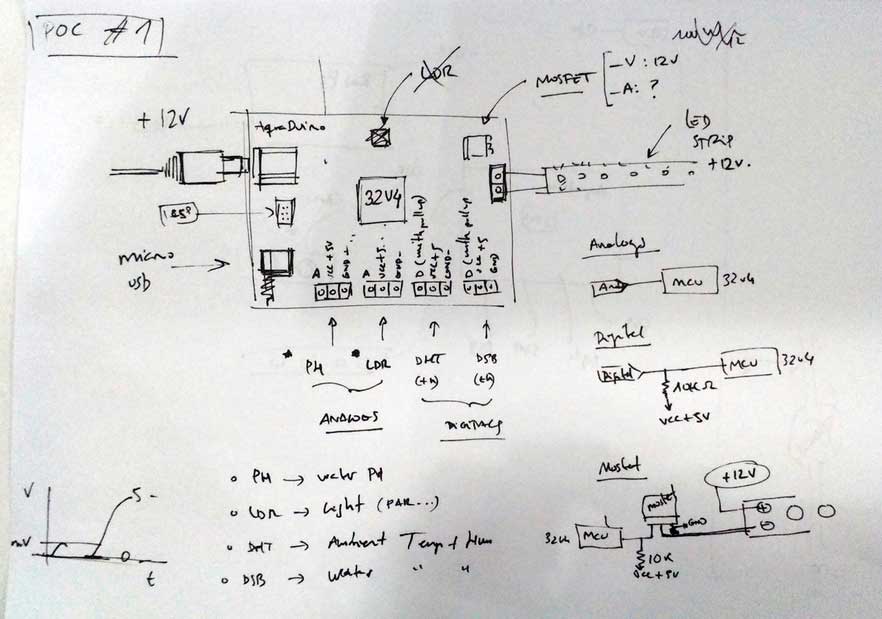 POC #1
LDR
MOSFET
- V : 12V
- A : ?
+ 12V
AquaDuino
LED
STRIP
+12V.
32U4
micro
usb
A
VCC+5V
GND
A
VCC+5
GND
D (with pullup)
VCC+5
GND
D (with pullup)
VCC+5
GND
PH
LDR
DHT
(th)
DSB
ANALOGS
DIGITALS
Analogs
MCU
32U4
Digital
Digital
MCU
32U4
10K Ω
VCC+5V
o PH → water PH
o LDR → Light (PAR...)
o DHT → Ambient Temp + Hum
o DSB → Water " "
V
5 -
mV
0
t
Mosfet
+12V
mosfet
GND
32U4
MCU
10K
VCC+5V